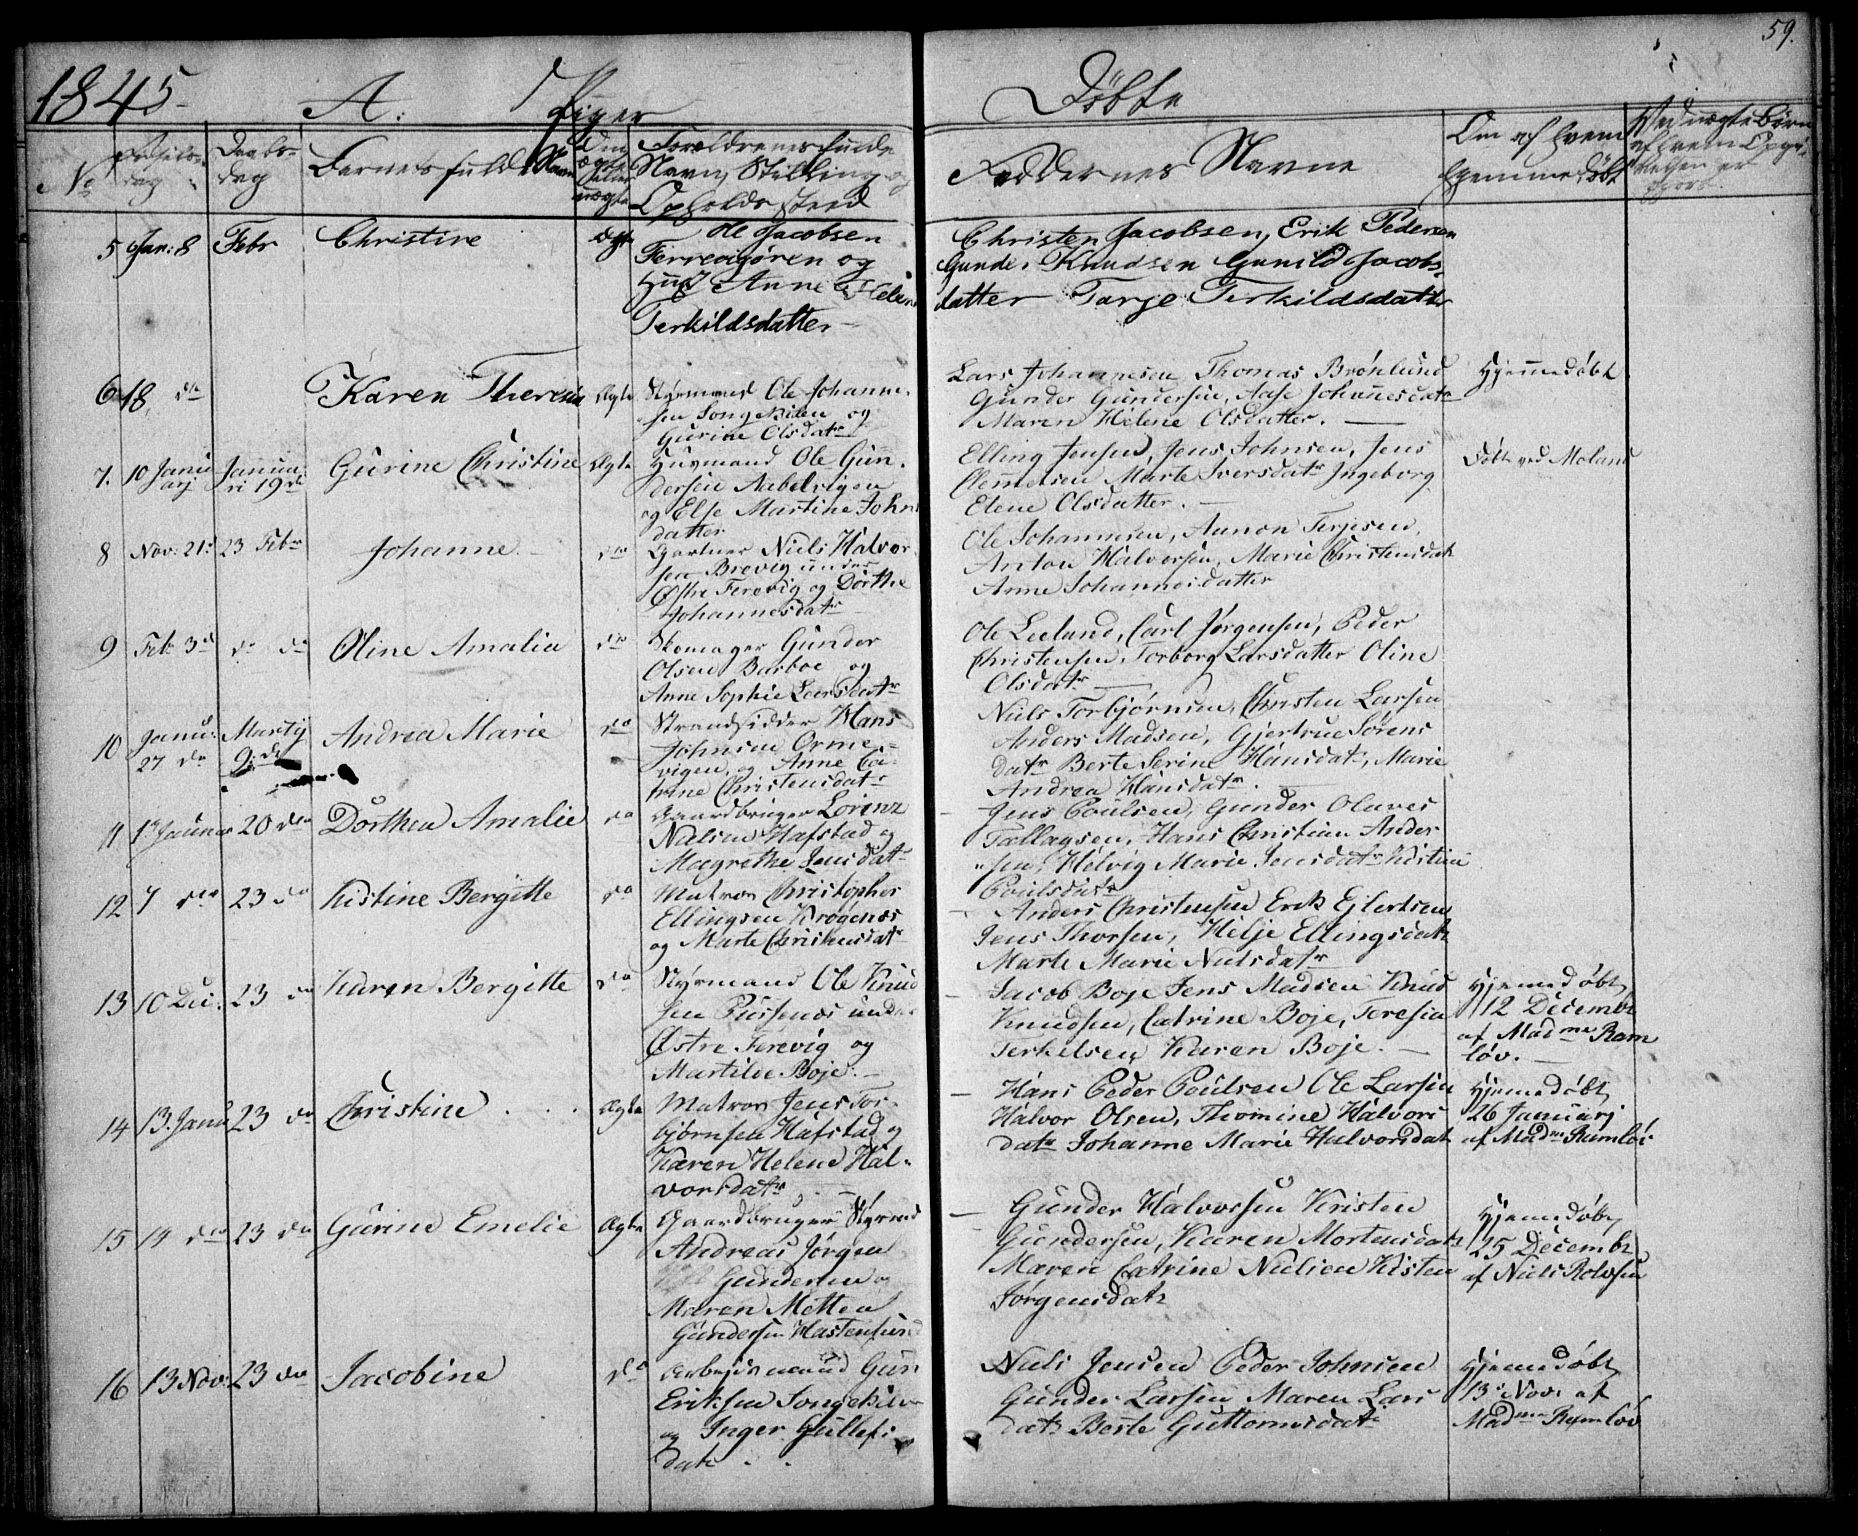 59.
1845 A: Piger Döbte
No Fødsels- dag Daabs- dag Barnets fulde Navn Om ægte eller uægte Forældrenes fulde Navn, Stilling og Opholds sted
Faddernes Navne Om af hvem hjemmedøbt Ved uægte Børn af hvem Opgi- velsen er gjort
5 Jan: 8 Febr Christine ægte Ole Jacobsen
Ferreagören og
Hust Anne Helene
Terkildsdatter
Christen Jacobsen, Erik Pedersen
Gunder Knudsen Gunild Jacobs-
datter Targe Terkildsdatter
6 18 do Karen Theresia Ægte Styrmand Ole Johanne-
sen Songekilen og
Gurine Olsdatr
Lars Johannesen Thomas Brönlund
Gunder Gundersen, Aase Johannesdatr
Maren Helene Olsdatter.
Hjemmedøbt
7. 10 Janu arj Janua ri 19de Gurine Christine Ægte Huusmand Ole Gun-
dersen Nabelvigen
og Else Martine Johns
datter
Elling Jensen, Jens Johnsen, Jens
Clemmetsen Marte Iversdatr Ingeborg
Elene Olsdatter.
Döbt ved Moland
8 Nov: 21: 23 Febr Johanne do Gartner Niels Halvor-
sen Brevig under
Østre Ferevig og Dorthe
Johannesdatr
Ole Johannesen, Aanon Terjesen,
Anton Halvorsen, Marie Christensdatr
Anne Johannesdatter
9 Feb 3d do do Oline Amalia do Skomager Gunder
Olsen Barboe og
Anne Sophie Larsdatr
Ole Leelund, Carl Jørgensen, Peder
Christensen, Torborg Larsdatter Oline
Olsdatr
10 Janu: 27 do Martij 9: de Andrea Marie do Strandsidder Hans
Johnsen Orme-
vigen, og Anne Ca-
trine Christensdatr
Niels Torbjørnsen, Christen Larsen
Anders Madsen, Gjertrue Sørens
datr Berte Serine Hansdatr, Marie
Andrea Hansdatr.
11 1 Januar 20 do Dorthea Amalie do Gaardbruger Lorenz
Nielsen Hafstad og
Magrethe Jensdatr
Jens Poulsen, Gunder Olaves
Tallagsen, Hans Christian Ander
sen, Helvig Marie Jensdatr Kistine
Poulsdatr
12 7 do 23 do Kistine Bergitte do Matros Christopher
Ellingsen Krogenæs
og Marte Christensdatr
Anders Christensen Erik Ejlertsen
Jens Thorsen, Helje Ellingsdatr
Marte Marie Nielsdatr
13 10 Dec: 23 do Karen Bergitte do Styrmand Ole Knud
sen Pussenæs under
Østre Ferevig og
Martilde Boje.
Jacob Boje Jens Madsen Knud
Knudsen, Catrine Boje, Teresia
Terkelsen Karen Boje.
Hjemmedøbt
12 Decembr
af Madme Ram
löv.
14 13. Janu 23 do Christine Ægte Matros Jens Tor-
bjørnsen Hafstad og
Karen Helene Hal-
vorsdatr
Hans Peder Poulsen Ole Larsen
Halvor Olsen, Thomine Halvors
datr Johanne Marie Halvorsdatr
Hjemmedøbt
26 Januarj
af Madme Ramlöv
15 14 do 23 do Gurine Emelie Ægte Gaardbruger Styrmd
Andreas Jørgen
Gundersen og
Maren Metten
Gundersen Hastensund
Gunder Halvorsen Kristen
Gundersen, Karen Mortensdatr
Maren Catrine Nielsen Kisten
Jørgensdatr
Hjemmedøbt
25 Decembr
af Niels Rolvsen
16 13 Nov: 23 do Jacobine do Arbejdsmand Gun
Eriksen Songekilen
og Inger Gullefs
datr
Niels Jensen Peder Johnsen
Gunder Larsen Maren Lars
datr Berte Guttormsdatr
Hjemmedøbt
13 Nov: af
Madme Ramlöv